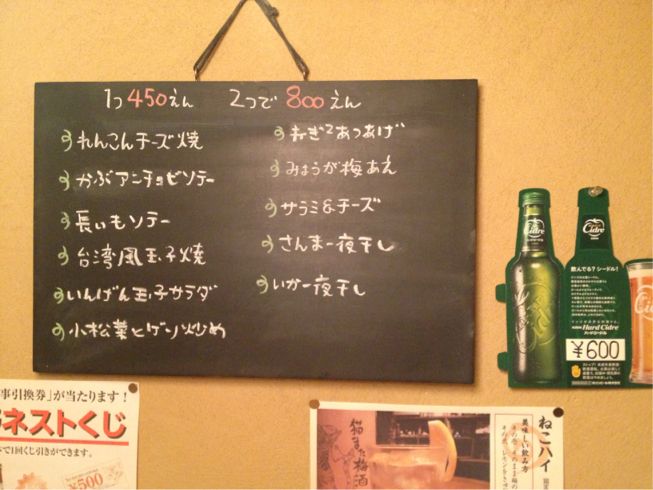 1つ450えん 2つで800えん
れんこんチーズ焼
かぶアンチョビソテー
長いもソテー
台湾風玉子焼
いんげん玉子サラダ
小松菜とゲソ炒め
ねぎみそあつあげ
みょうが梅あえ
サラミ&チーズ
さんま一夜干し
いか一夜干し
Cidre
Cidre
飲んでる?シードル!
Hard Cidre
ハードシードル
¥600
事引換券」が当たります!
ネストくじ
で1回くじ引きができます。
¥500
猫また梅酒
ねこハイ
美味しい飲み方